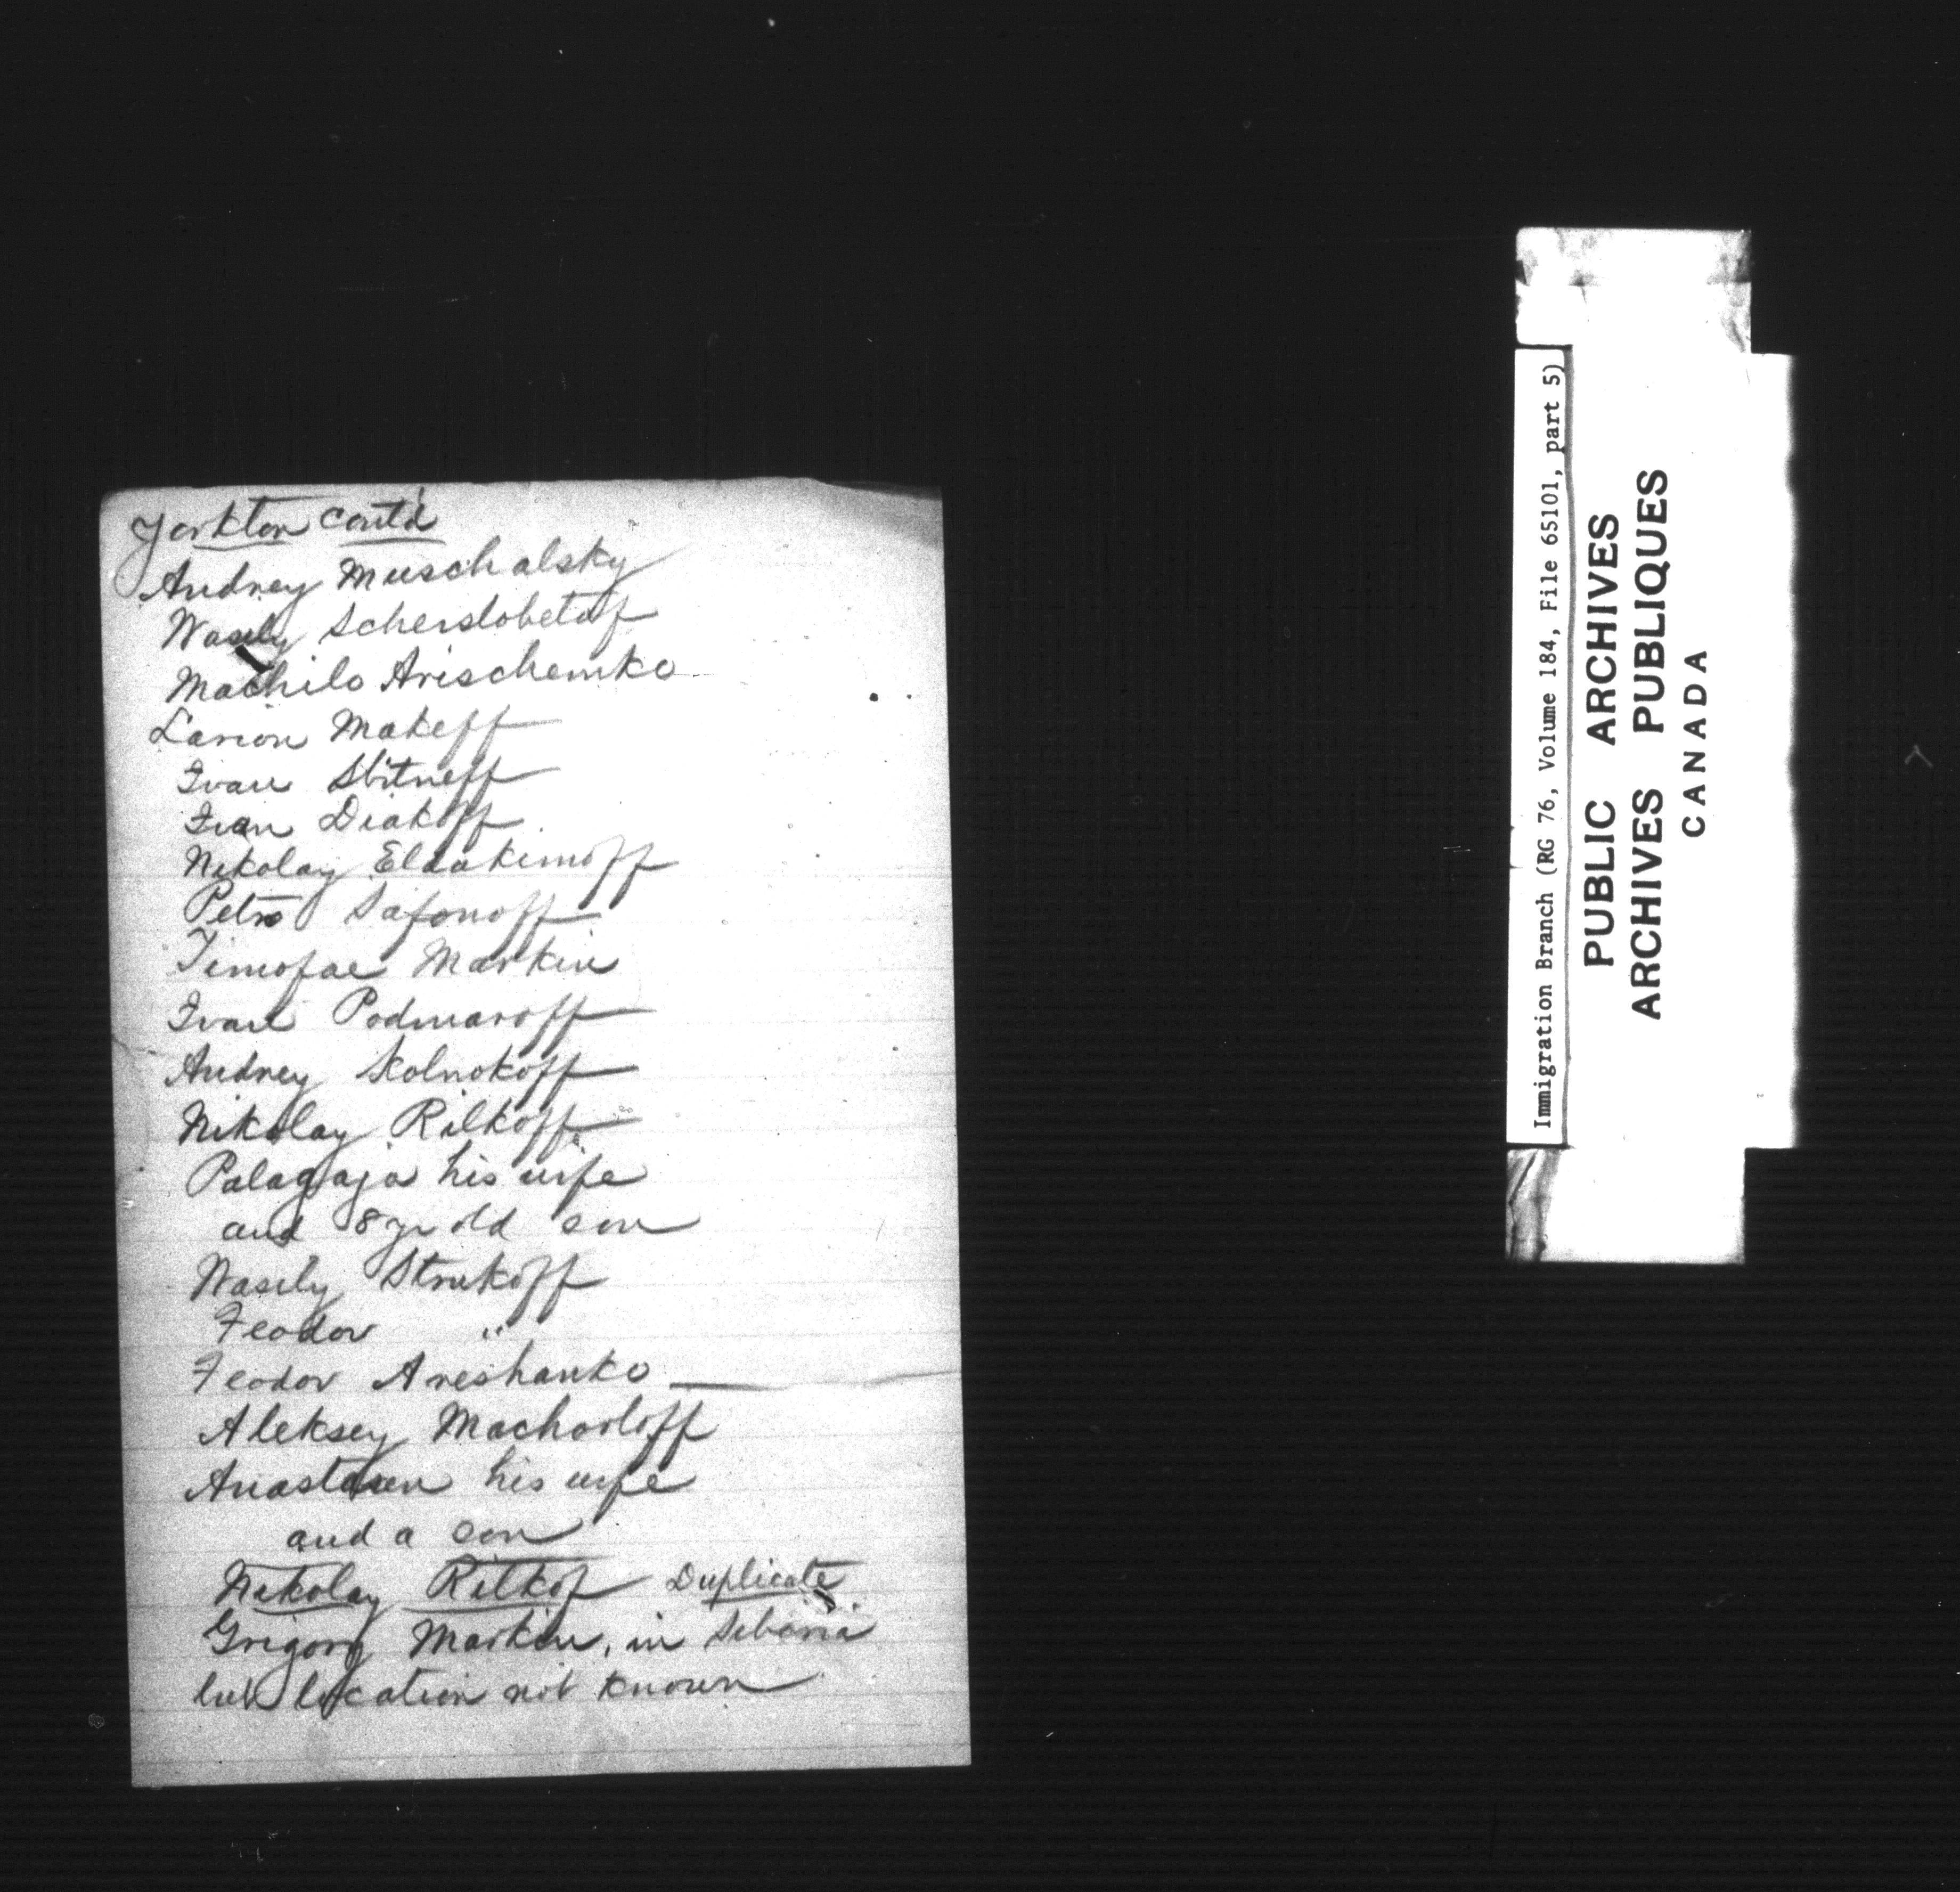 Yorkton Contd
Andrey Muschalsky
Wasily Scherslobetof
Machilo Arischenko
Larion Makeff
Ivan Sbitneff
Ivan Diakoff
Nikolay Eldakimoff
Petro Safonoff
Timofae Markin
Ivan Podmaroff
Andrey Kolnokoff
Nikolay Rilkoff
Palagaja his wife
and 8 yr old son
Wasily Strukoff
Feodor "
Feodor Areshanko
Aleksey Machorloff
his wife
and a son
Nikolay Rilkof Duplicate
Grigory Markin, in Siberia
but location not known
Immigration Branch (RG 76, Volume 184, File 65101, part 5)
PUBLIC ARCHIVES
ARCHIVES PUBLIQUES
CANADA